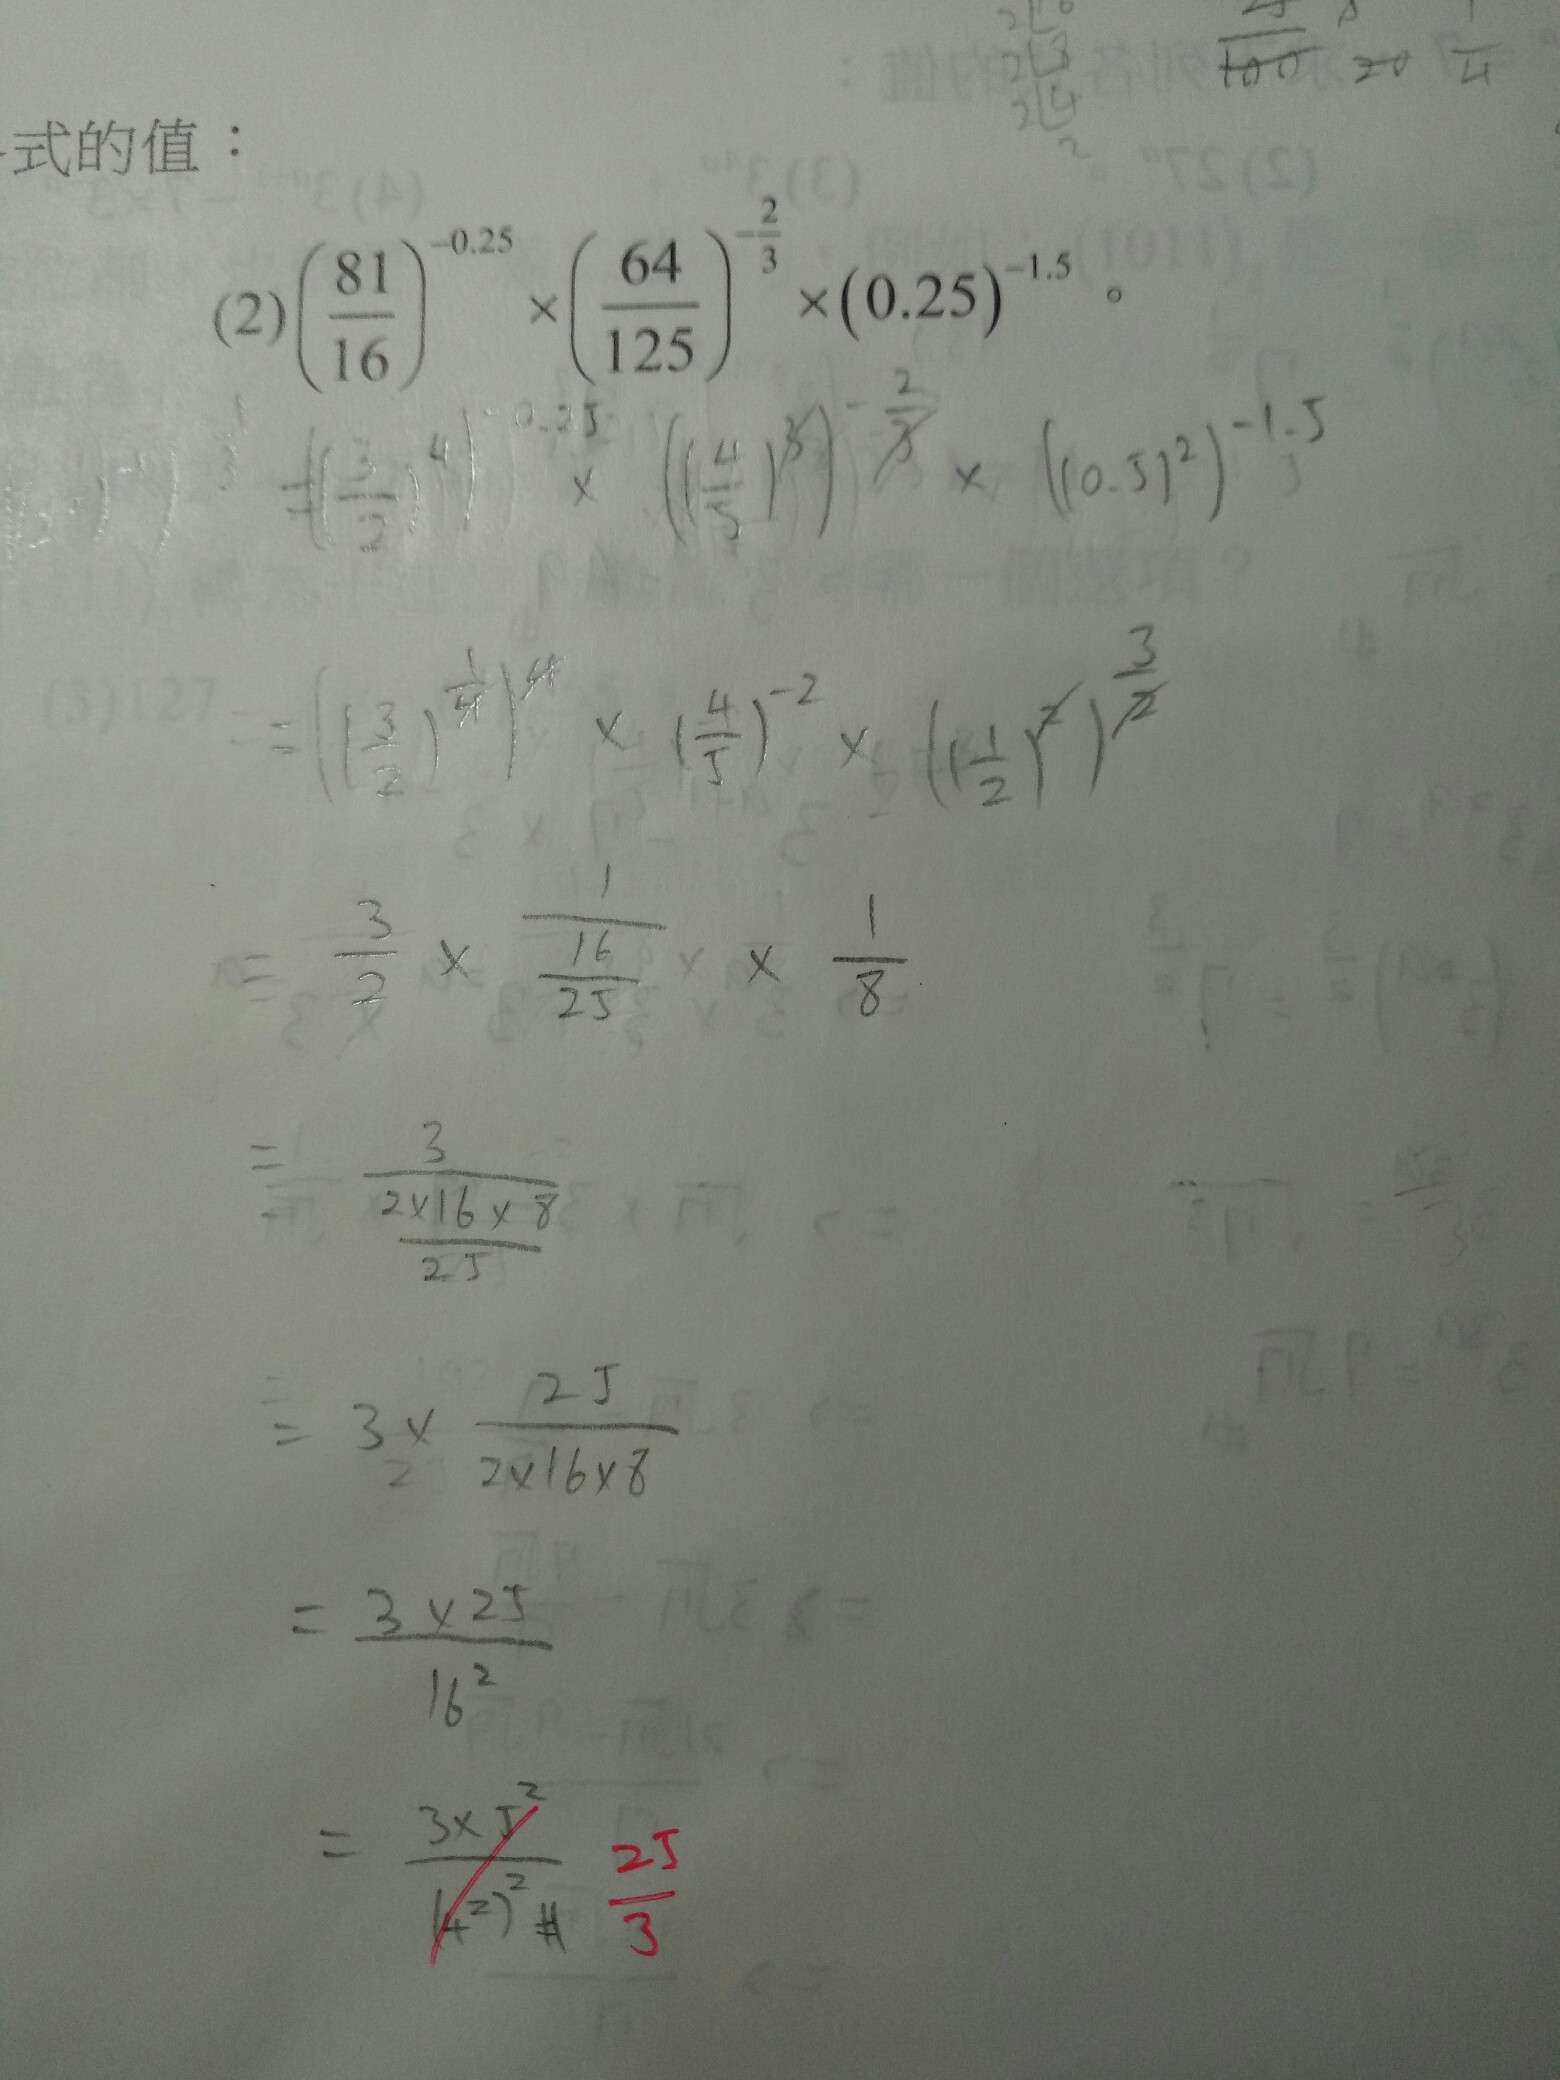 式的值：
(2) (81/16)^{-0.25} × (64/125)^{-2/3} × (0.25)^{-1.5} 。
= ((3/2)^4)^{-0.25} × ((4/5)^3)^{-2/3} × ((0.5)^2)^{-1.5}
= ((3/2)^{1/4})^4 × (4/5)^{-2} × ((1/2)^2)^{3/2}
= 3/2 × 1/(16/25) × 1/8
= 3/((2×16×8)/25)
= 3 × 25/(2×16×8)
= (3×25)/16^2
= (3×5^2)/(4^2)^2 # 25/3